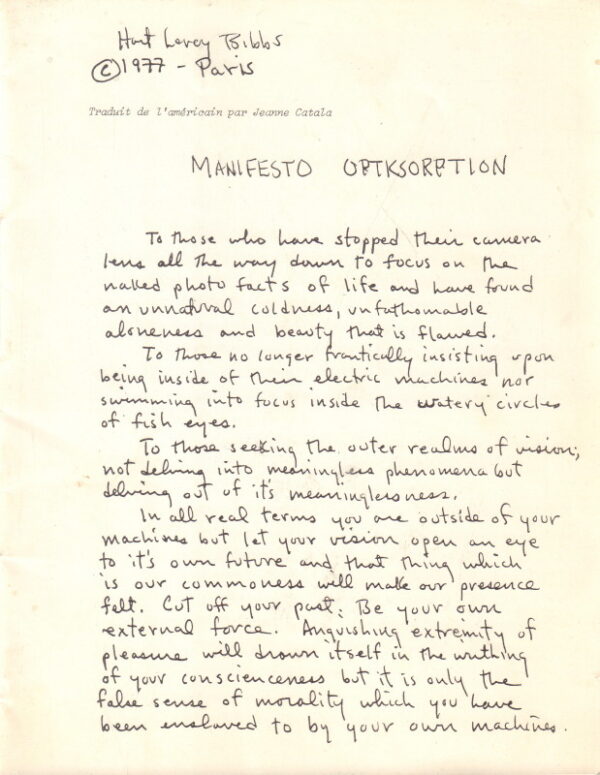 Hart Leroy Bibbs
© 1977 - Paris
Traduit de l'américain par Jeanne Catala
MANIFESTO OPTKSORPTION
To those who have stopped their camera
lens all the way down to focus on the
naked photo facts of life and have found
an unnatural coldness, unfathomable
aloneness and beauty that is flawed.
To those no longer frantically insisting upon
being inside of their electric machines nor
swimming into focus inside the watery circles
of fish eyes.
To those seeking the outer realms of vision;
not delving into meaningless phenomena but
delving out of it's meaninglessness.
In all real terms you are outside of your
machines but let your vision open an eye
to it's own future and that thing which
is our commoness will make our presence
felt. Cut off your past; Be your own
external force. Anguishing extremity of
pleasure will drown itself in the writhing
of your conscienceness but it is only the
false sense of morality which you have
been enslaved to by your own machines.